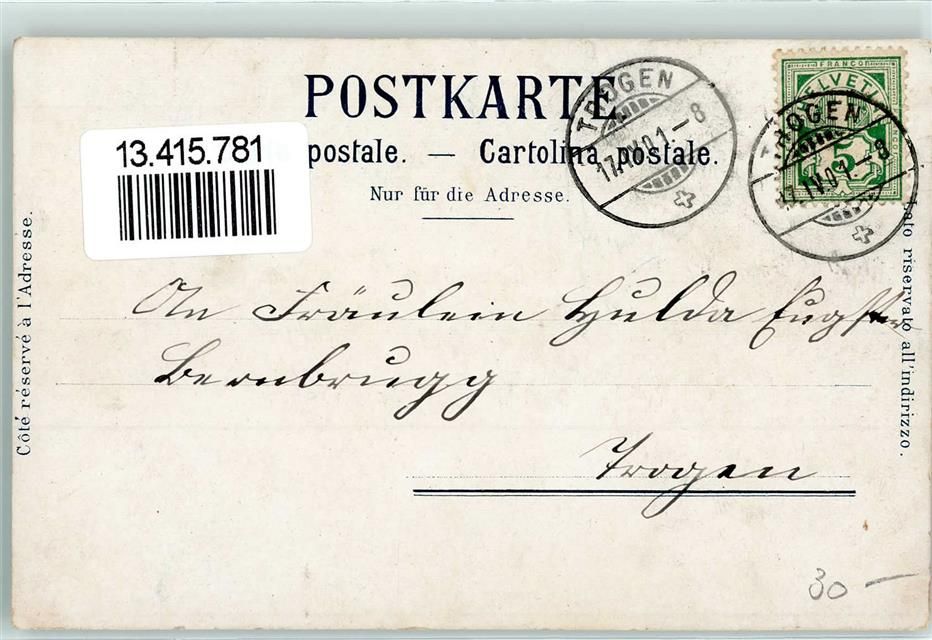 POSTKARTE
13.415.781
postale. — Cartolina postale.
Nur für die Adresse.
TROGEN
17.IV.01.–8
FRANCO
HELVETIA
5
TROGEN
17.IV.01.–8
Côté réservé à l'Adresse.
Lato riservato all'indirizzo.
An Fräulein Hulda Eugster
Bernbrugg
Trogen
30 –